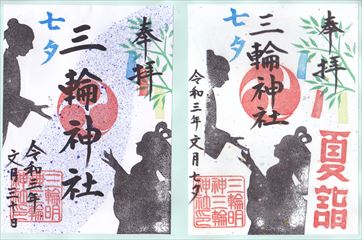 奉拝
七夕
三輪神社
令和三年
文月三十日
三輪明
神三輪
神社印
奉拝
七夕
三輪神社
令和三年文月七夕
夏詣
三輪明
神三輪
神社印